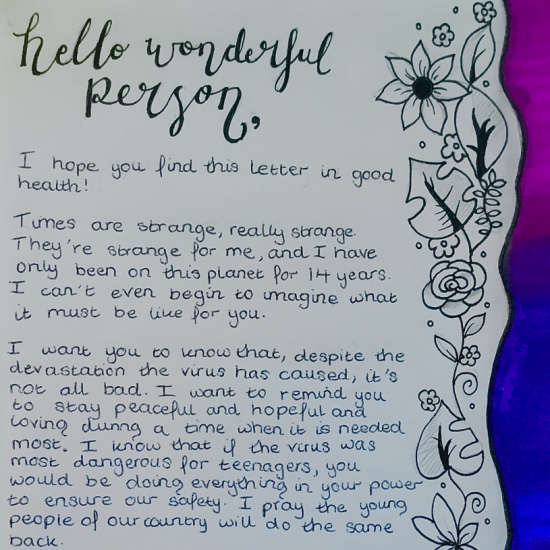 hello wonderful
person,
I hope you find this letter in good
health!
Times are strange, really strange.
They're strange for me, and I have
only been on this planet for 14 years.
I can't even begin to imagine what
it must be like for you.
I want you to know that, despite the
devastation the virus has caused, it's
not all bad. I want to remind you
to stay peaceful and hopeful and
loving during a time when it is needed
most. I know that if the virus was
most dangerous for teenagers, you
would be doing everything in your power
to ensure our safety. I pray the young
people of our country will do the same
back.